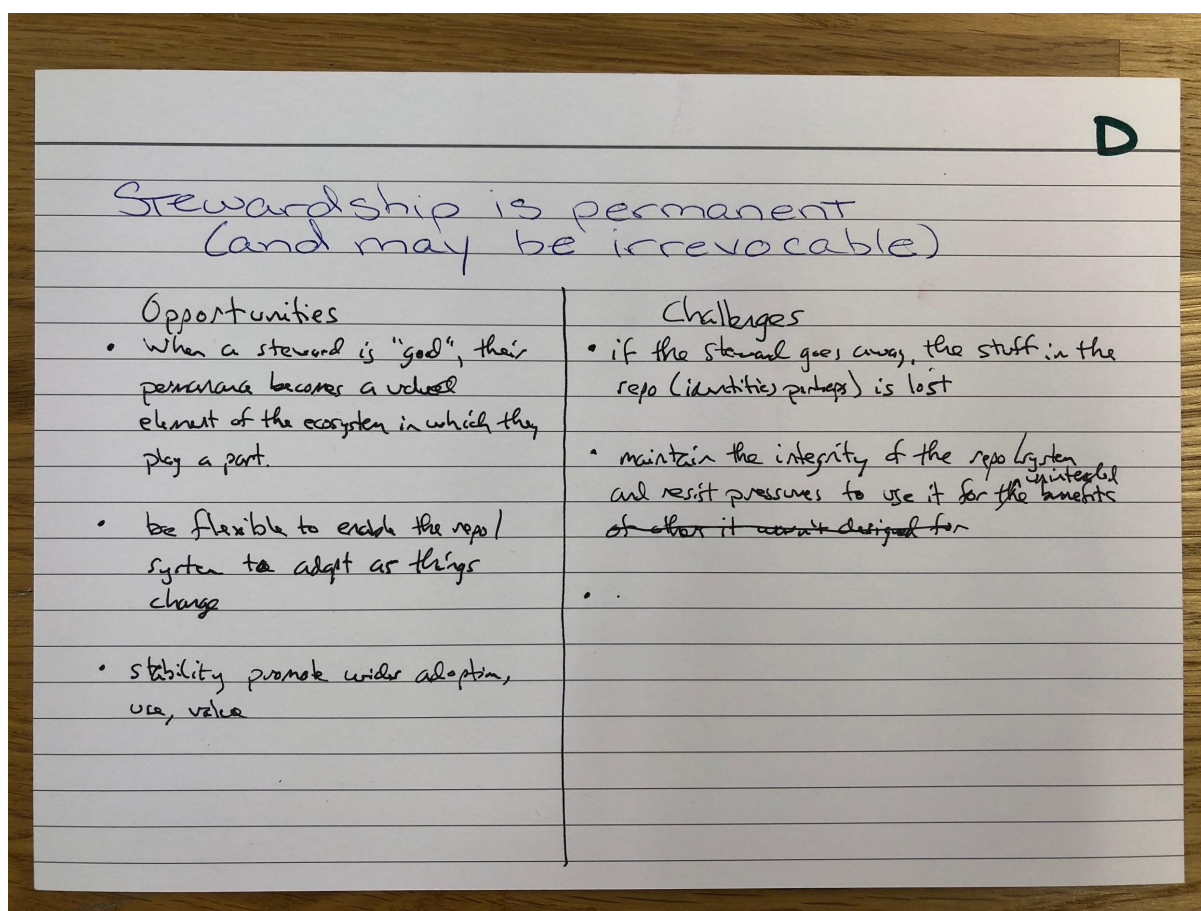 D
Stewardship is permanent
(and may be irrevocable)
Opportunities
• When a steward is "god", their
permanence becomes a valued
element of the ecosystem in which they
play a part.
• be flexible to enable the repo/
system to adapt as things
change
• stability promote wider adoption,
use, value
Challenges
• if the steward goes away, the stuff in the
repo (identities perhaps) is lost
• maintain the integrity of the repo/system
and resist pressures to use it for the unintended benefits
of other it wasn't designed for
•